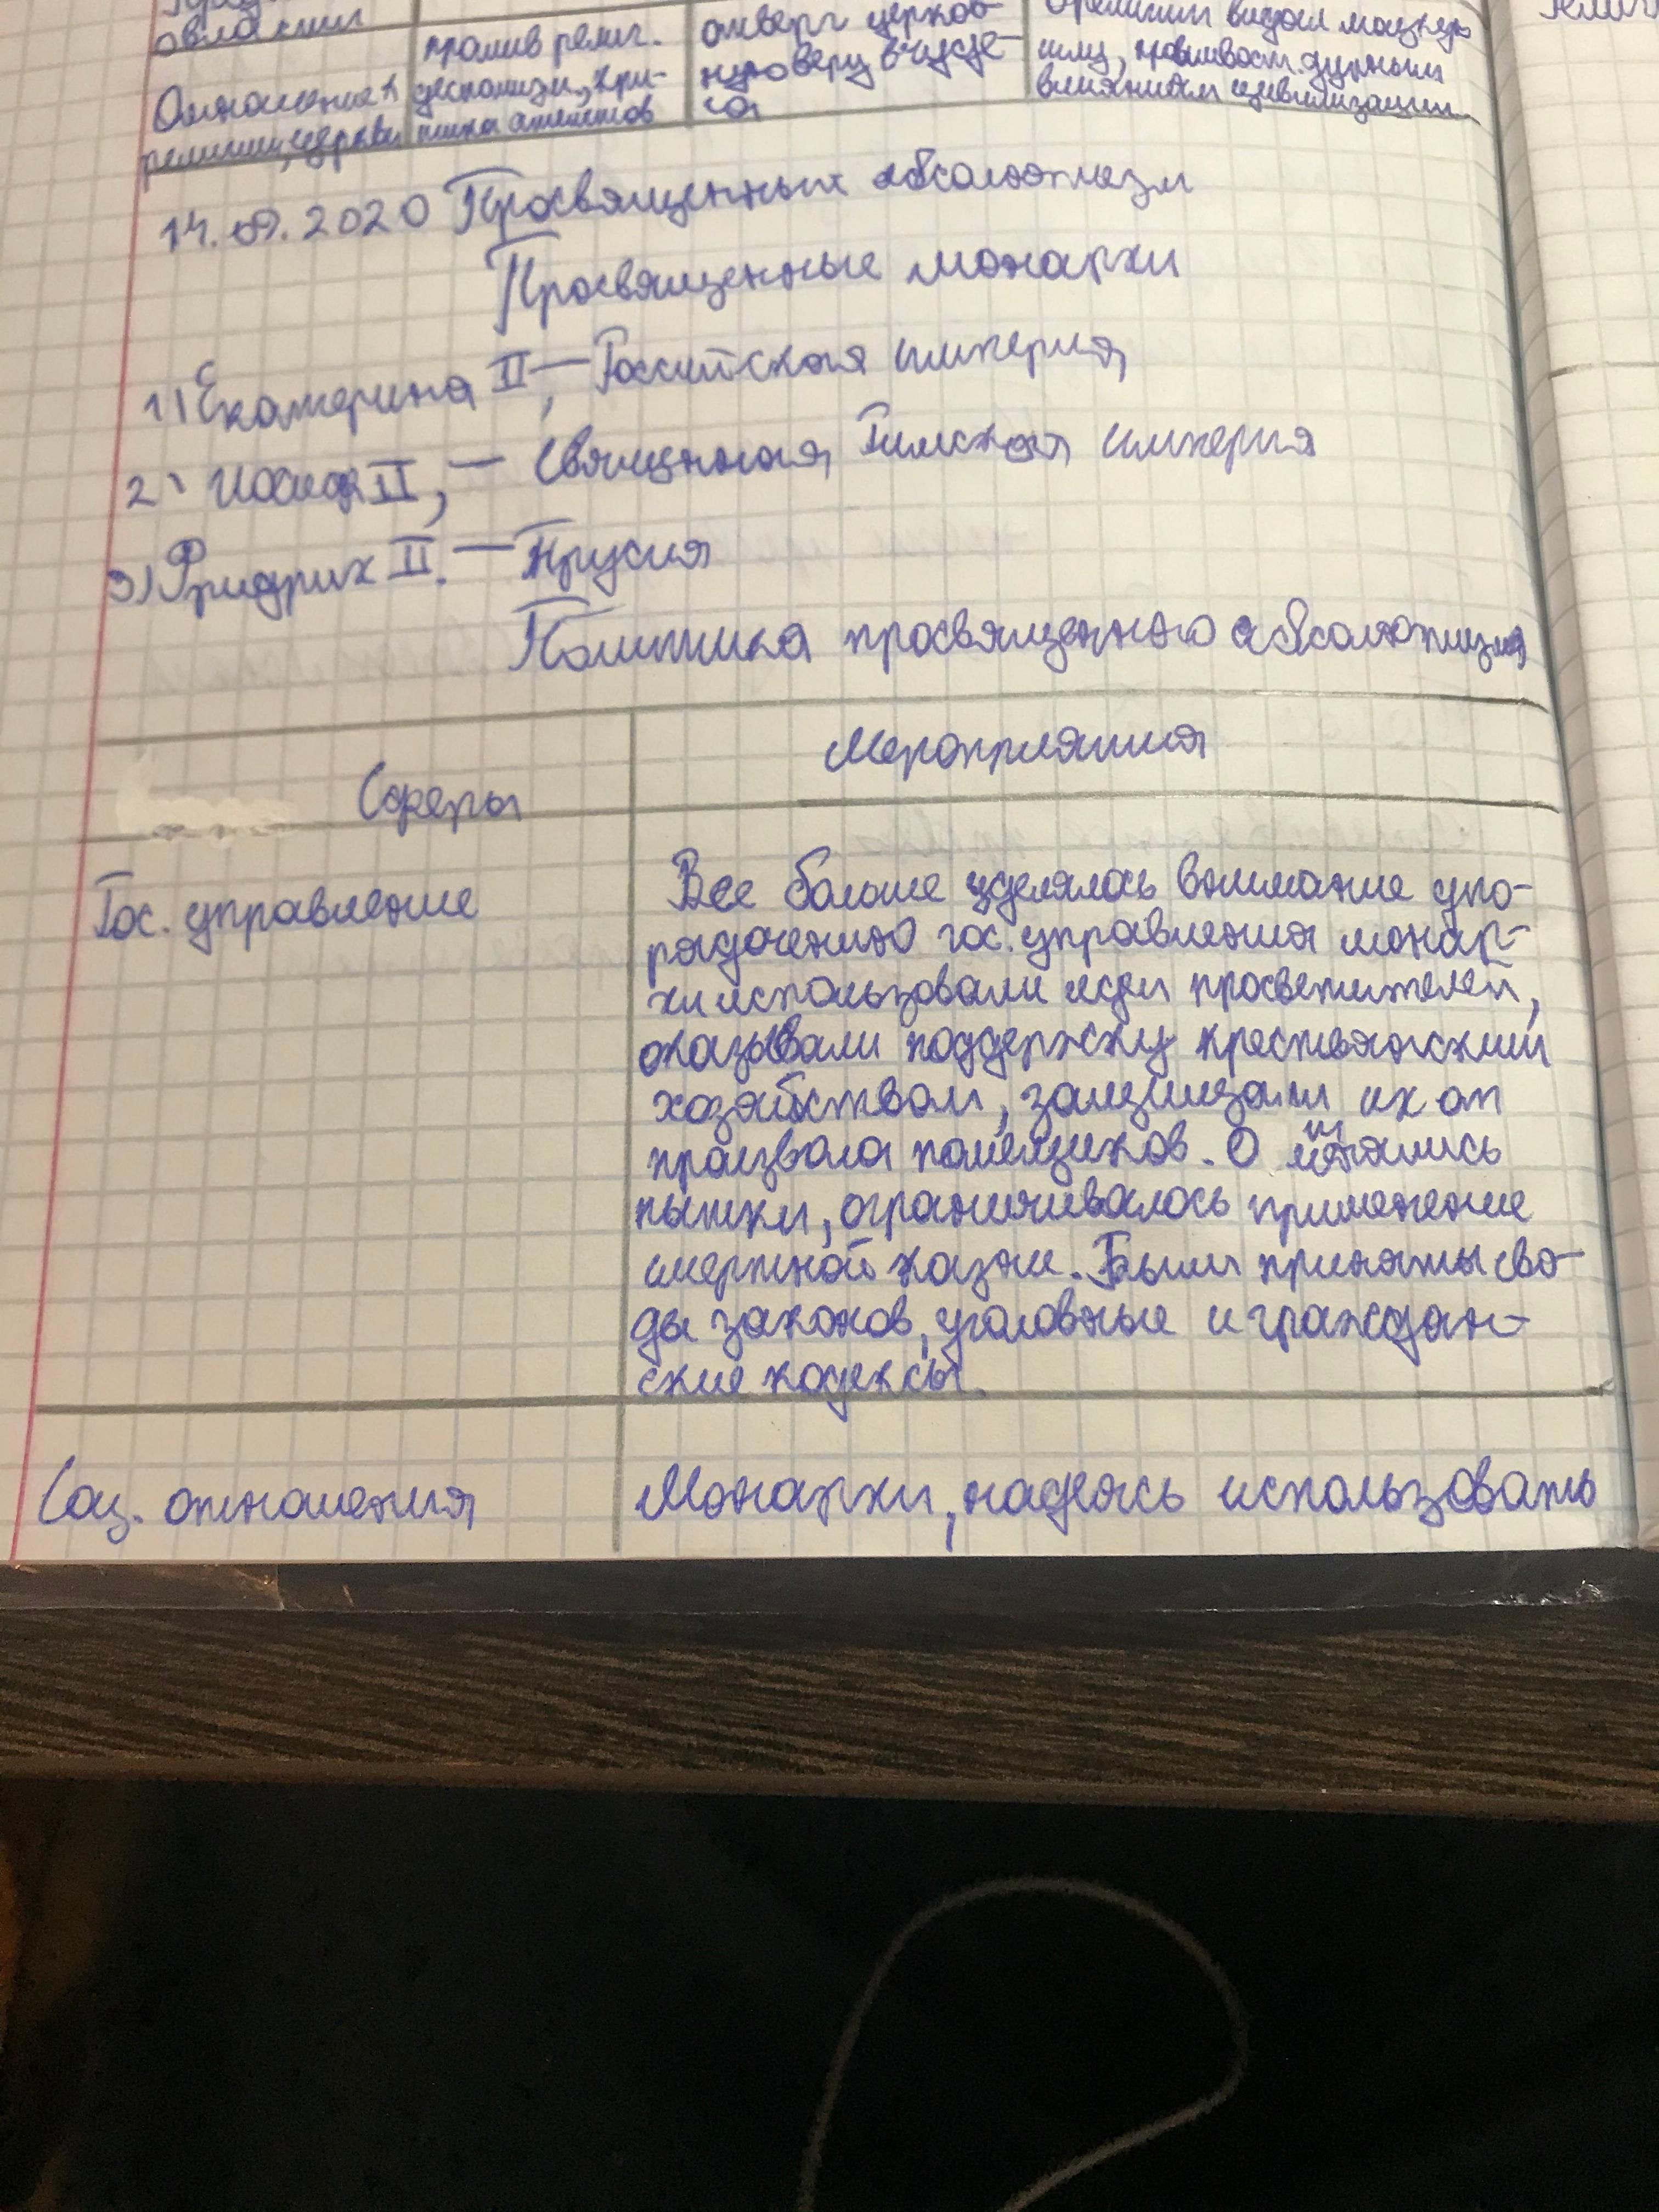 овласти
против религ.
отверг церков-
Отношение к
деспотизм, кри-
ную веру в чуде-
религии, церкви
тика атеистов
са
влиянием цивилизации
14.09.2020 Просвященных абсолютизм
Просвященные монархи
1) Екатерина II, — Российская империя
2) Иосиф II, — Священная Римская империя
3) Фридрих II. — Прусия
Политика просвященного абсолютизма
Сферы
Мероприятия
Гос. управление
Все больше уделялось внимание упо-
рядочению гос. управления монар-
хи использовали идеи просветителей,
оказывали поддержку крестьянским
хозяйствам, защищали их от
произвола помещиков. О менялись
пытки, ограничивалось применение
смертной казни. Были приняты сво-
ды законов, уголовные и граждан-
ские кодексы.
Соц. отношения
Монархи, надеясь использовать